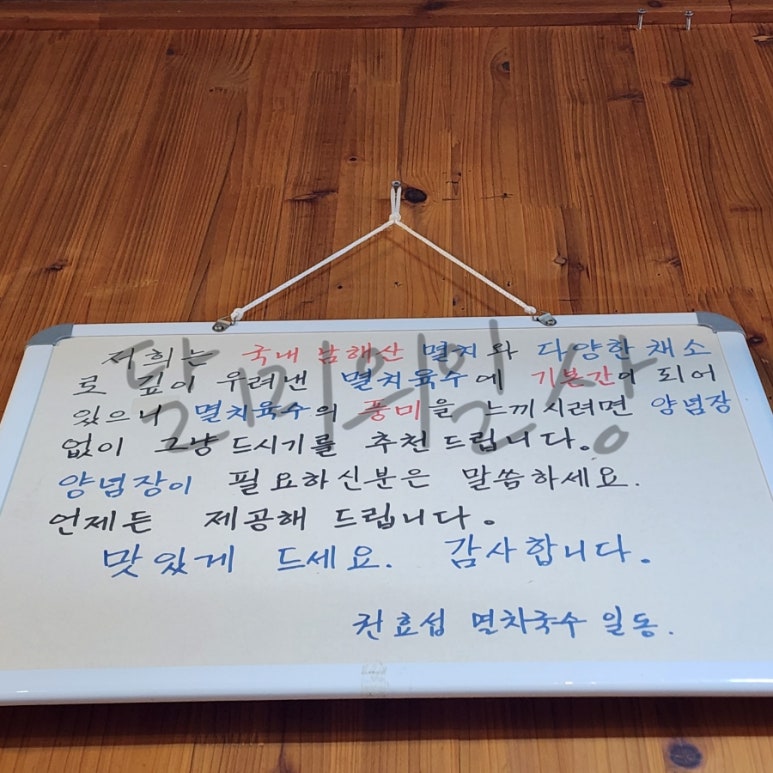 저희는 국내 남해산 멸치와 다양한 채소
로 깊이 우려낸 멸치육수에 기본간이 되어
있으니 멸치육수의 풍미을 느끼시려면 양념장
없이 그냥 드시기를 추천드립니다.
양념장이 필요하신분은 말씀하세요.
언제든 제공해 드립니다.
맛있게 드세요. 감사합니다.
권효섭 멸치국수 일동.
달리의일상